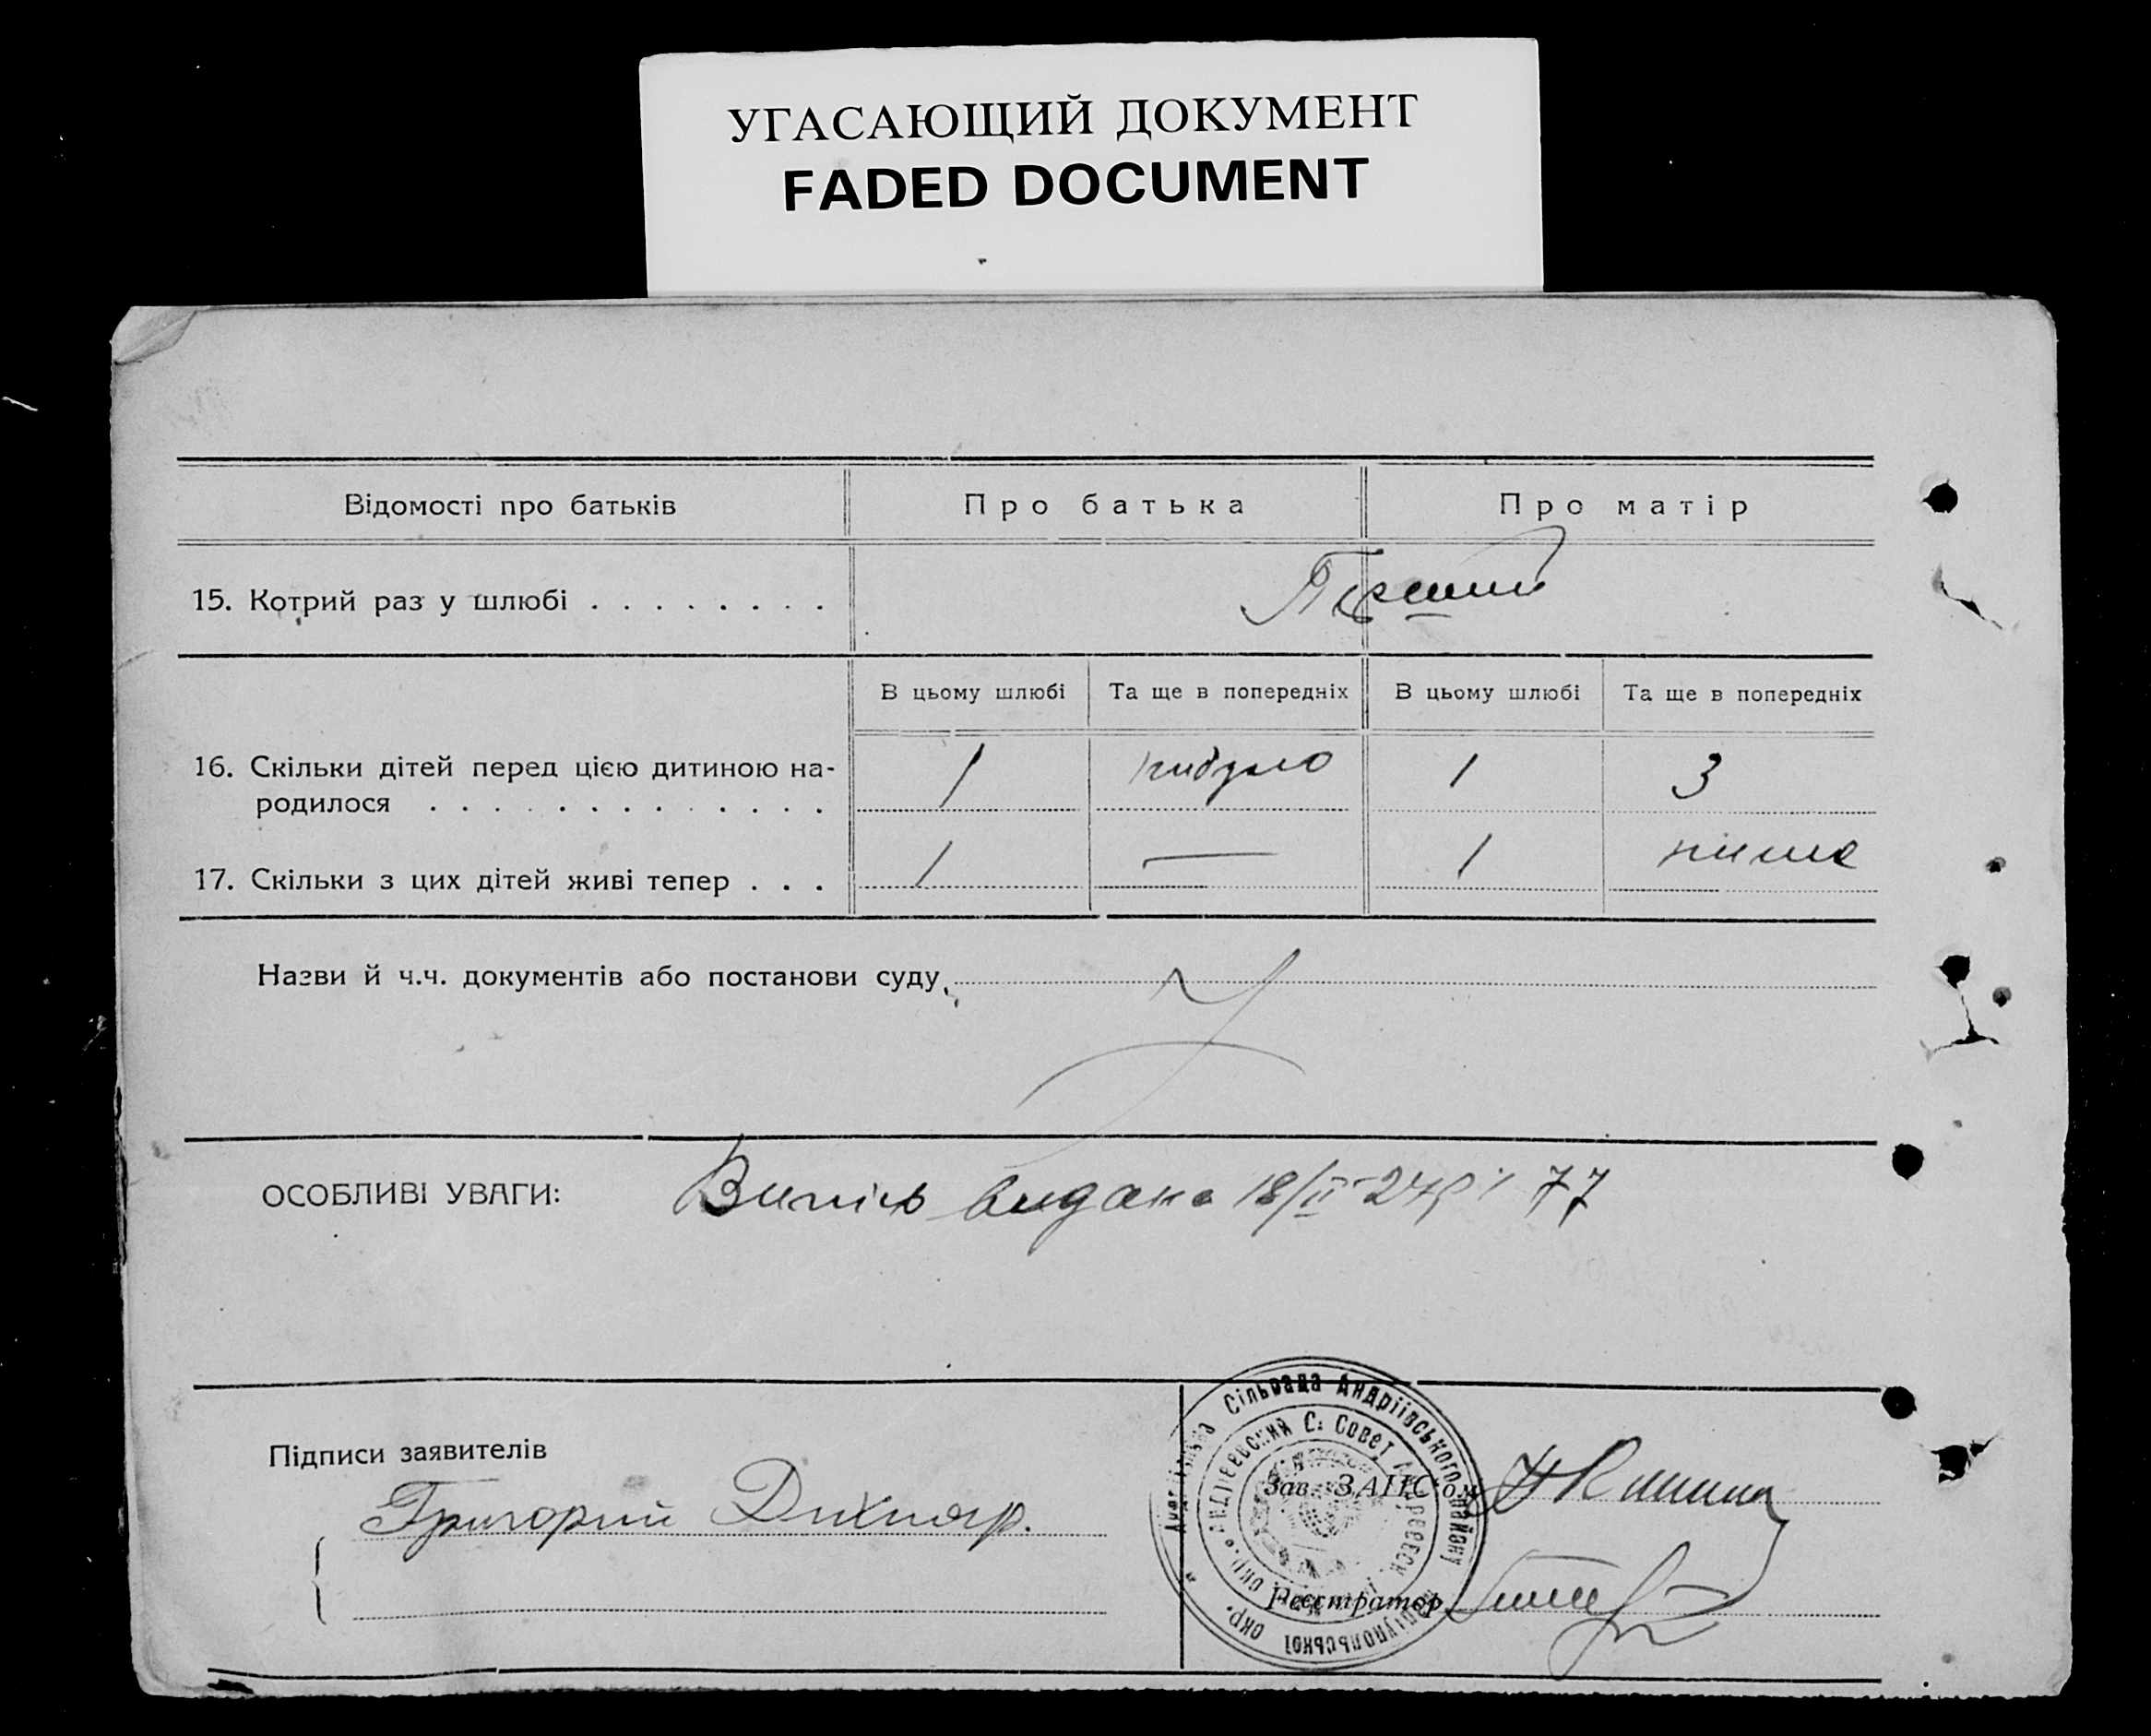 УГАСАЮЩИЙ ДОКУМЕНТ
FADED DOCUMENT
Відомості про батьків
Про батька
Про матір
15. Котрий раз у шлюбі . . . . . . . .
Перший
В цьому шлюбі
Та ще в попередніх
В цьому шлюбі
Та ще в попередніх
16. Скільки дітей перед цією дитиною на-
родилося . . . . . . . . . . . . .
1
небуло
1
3
17. Скільки з цих дітей живі тепер . . .
1
—
1
Назви й ч.ч. документів або постанови суду
ОСОБЛИВІ УВАГИ:
Випись видана 18/II 77
Підписи заявителів
Григорий
Сільрада Андріївського району Маріупольської окр.
С. Совет
Зав. ЗАГС'ом
Реєстратор